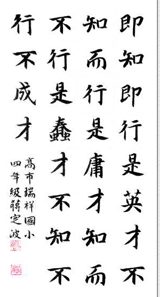 即知即行是英才不
知而行是庸才知而
不行是蠢才不知不
行不成才
高市瑞祥國小
四年級蔣定波